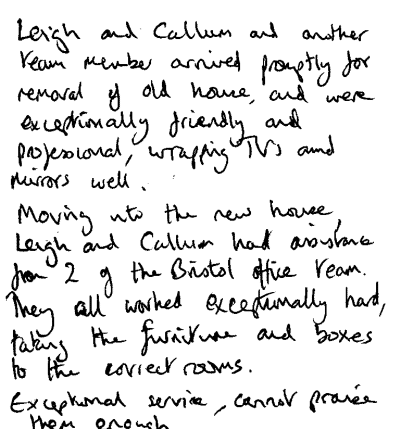 Leigh and Callum and another
team member arrived promptly for
removal of old house, and were
exceptionally friendly and
professional, wrapping TVs and
mirrors well.
Moving into the new house,
Leigh and Callum had assistance
from 2 of the Bristol office team.
They all worked exceptionally hard,
taking the furniture and boxes
to the correct rooms.
Exceptional service, cannot praise
them enough